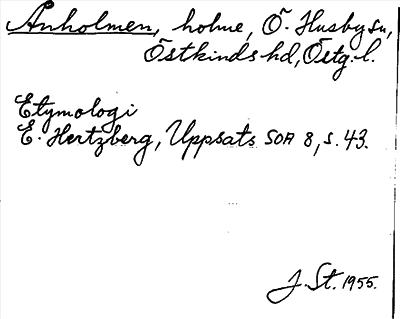 Anholmen, holme, Ö. Husby sn,
Östkinds hd, Östg. l.
Etymologi
E. Hertzberg, Uppsats SOA 8, s. 43.
J. St. 1955.